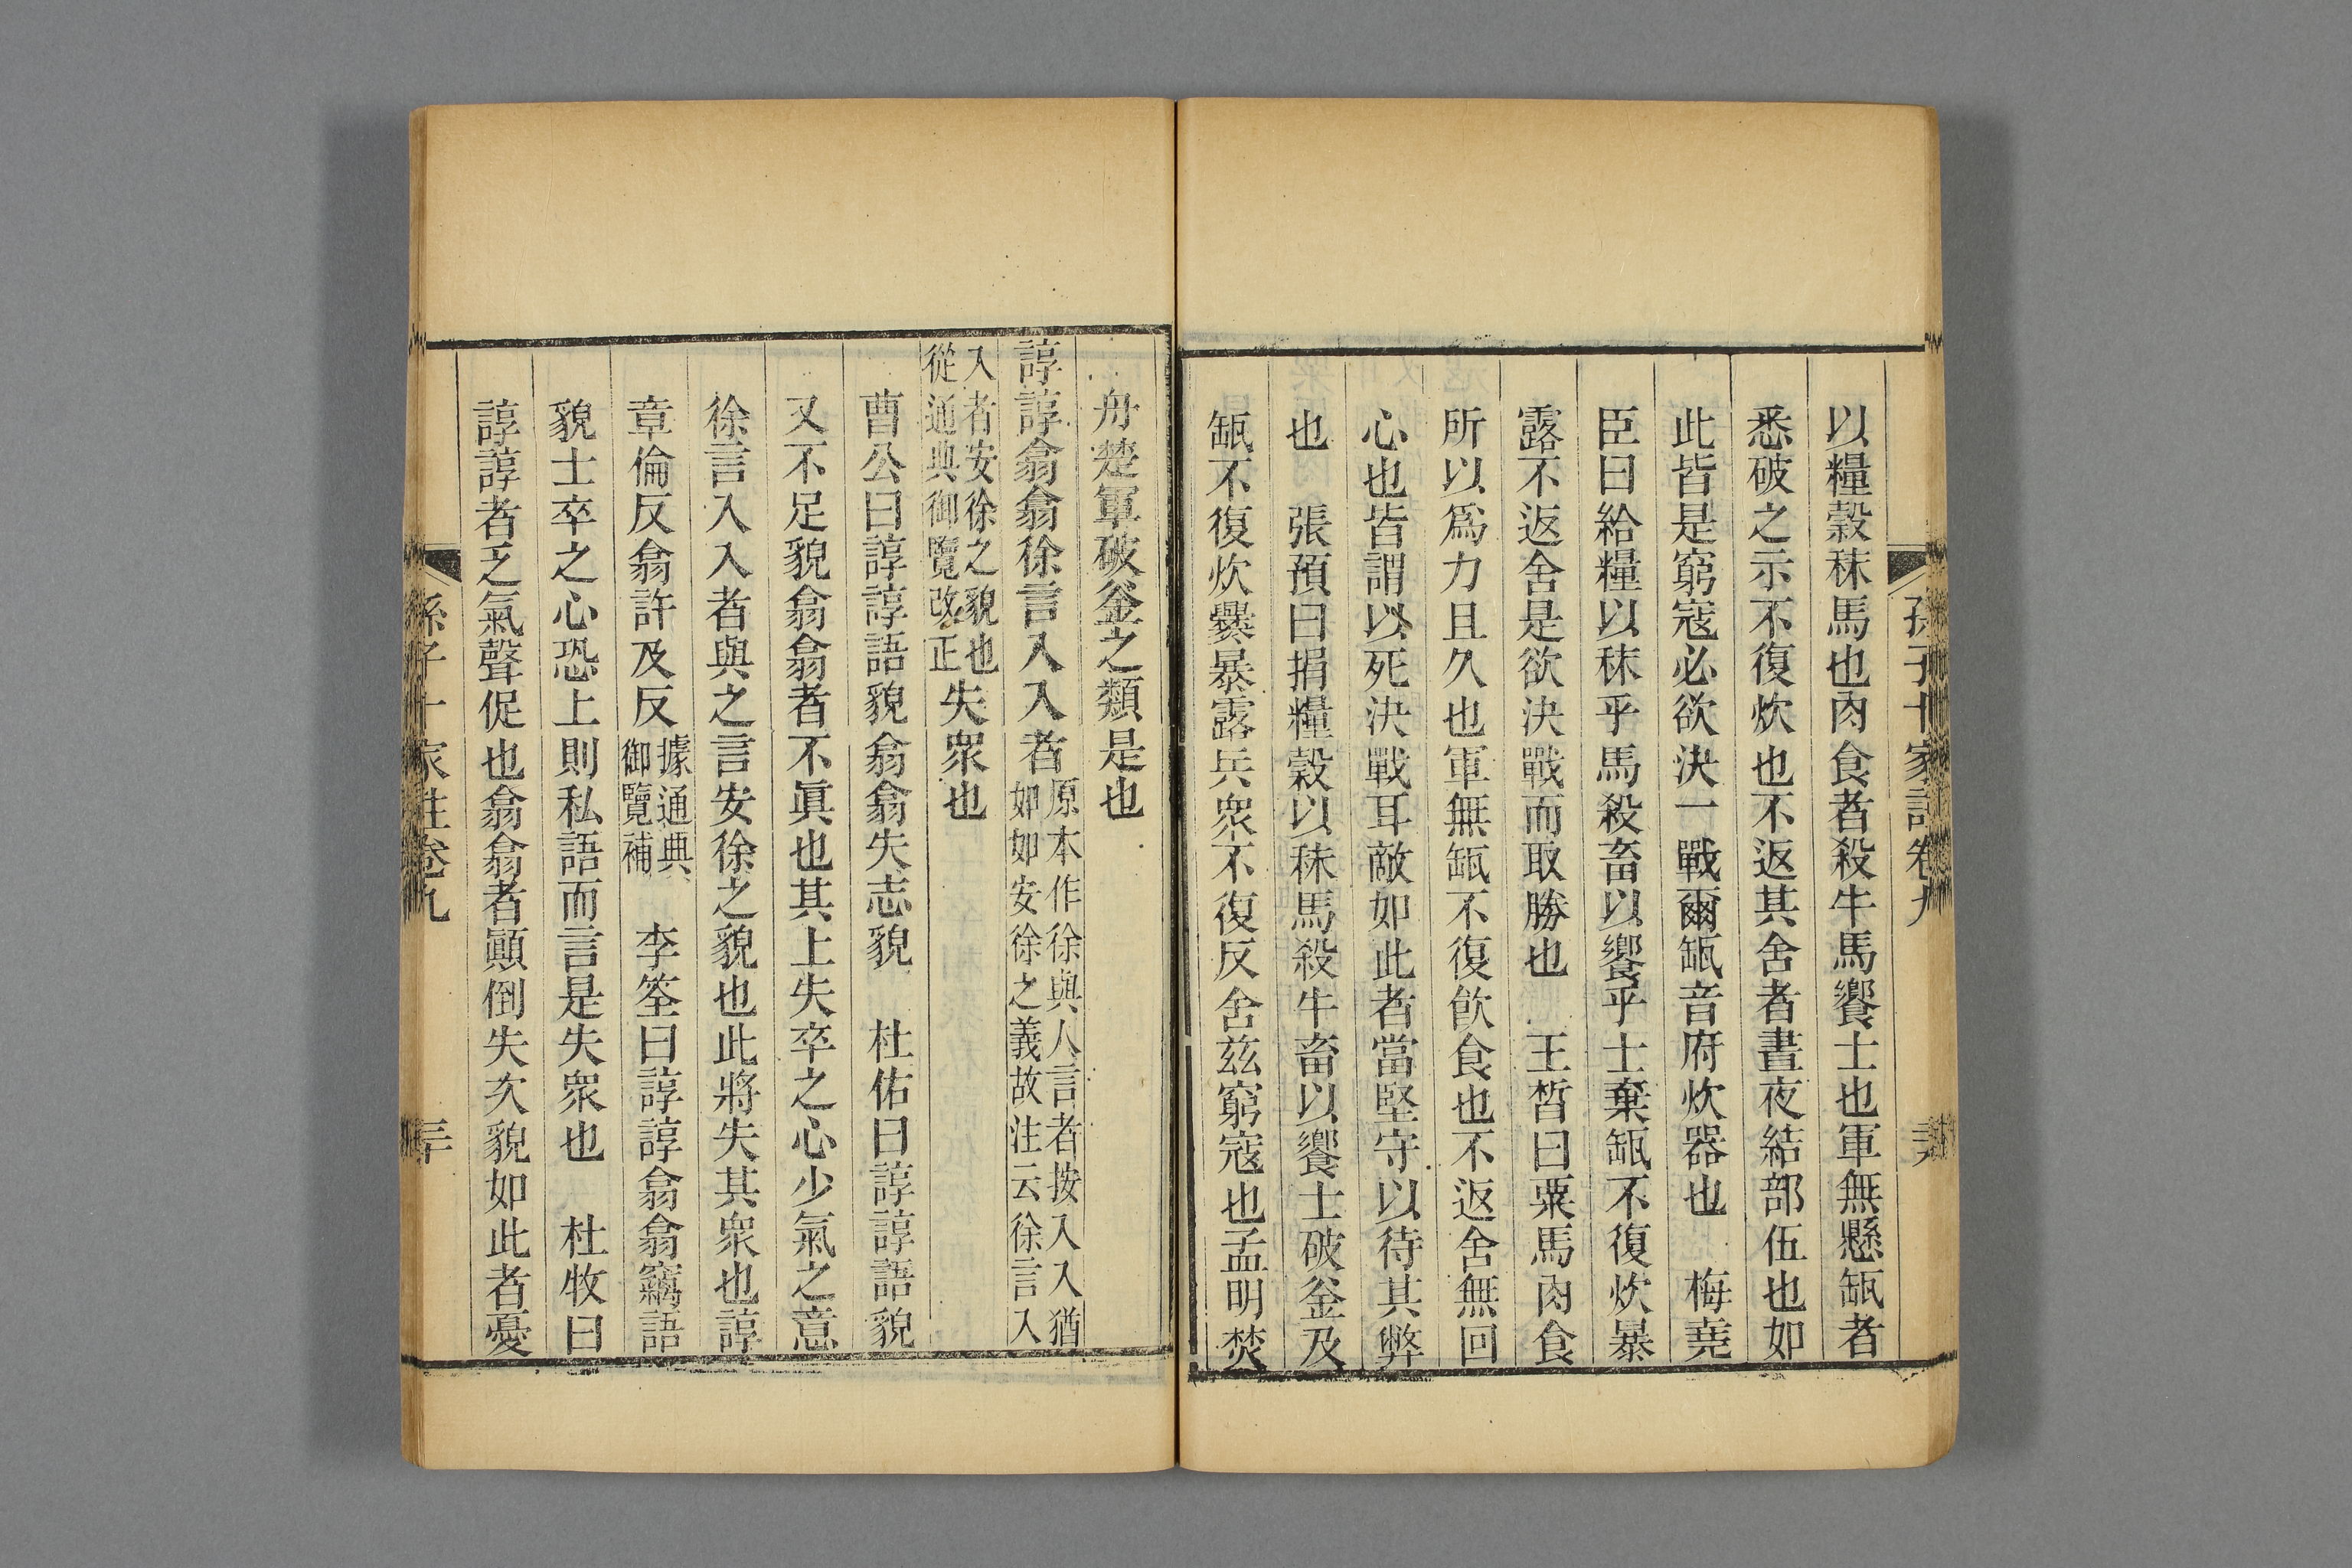 以糧穀秣馬也肉食者殺牛馬饗士也軍無懸缻者
悉破之示不復炊也不返其舍者晝夜結部伍也如
此皆是窮寇必欲決一戰爾缻音府炊器也　梅堯
臣曰給糧以秣乎馬殺畜以饗乎士棄缻不復炊暴
露不返舍是欲決戰而取勝也　王晳曰粟馬肉食
所以爲力且久也軍無缻不復飲食也不返舍無回
心也皆謂以死決戰耳敵如此者當堅守以待其弊
也　張預曰捐糧穀以秣馬殺牛畜以饗士破釜及
缻不復炊爨暴露兵衆不復反舍茲窮寇也孟明焚
舟楚軍破釜之類是也
諄諄翕翕徐言入入者原本作徐與人言者按入入猶
如如安徐之義故注云徐言入
入者安徐之貌也
從通典御覽改正失衆也
曹公曰諄諄語貌翕翕失志貌　杜佑曰諄諄語貌
又不足貌翕翕者不眞也其上失卒之心少氣之意
徐言入入者與之言安徐之貌也此將失其衆也諄
章倫反翕許及反據通典
御覽補　李筌曰諄諄翕翕竊語
貌士卒之心恐上則私語而言是失衆也　杜牧曰
諄諄者乏氣聲促也翕翕者顚倒失次貌如此者憂
孫子十家註卷九
三十